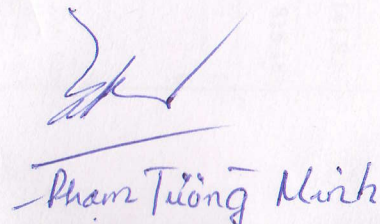 Phạm Tường Minh